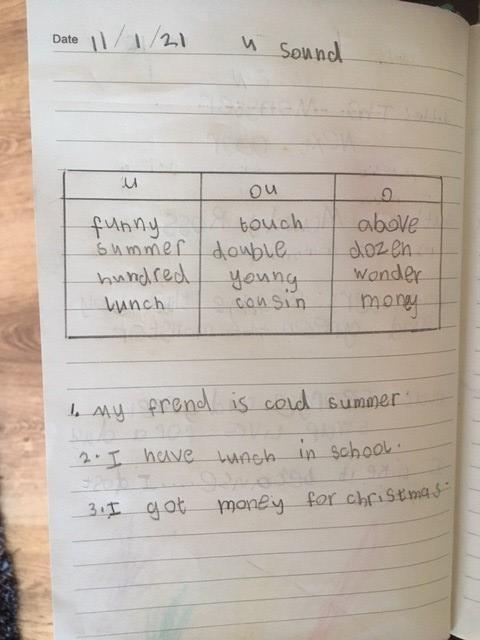 Date 11/1/21 u sound
u ou o
funny touch above
summer double dozen
hundred young wonder
lunch cousin money
1. My frend is cold summer.
2. I have lunch in school.
3. I got money for christmas.